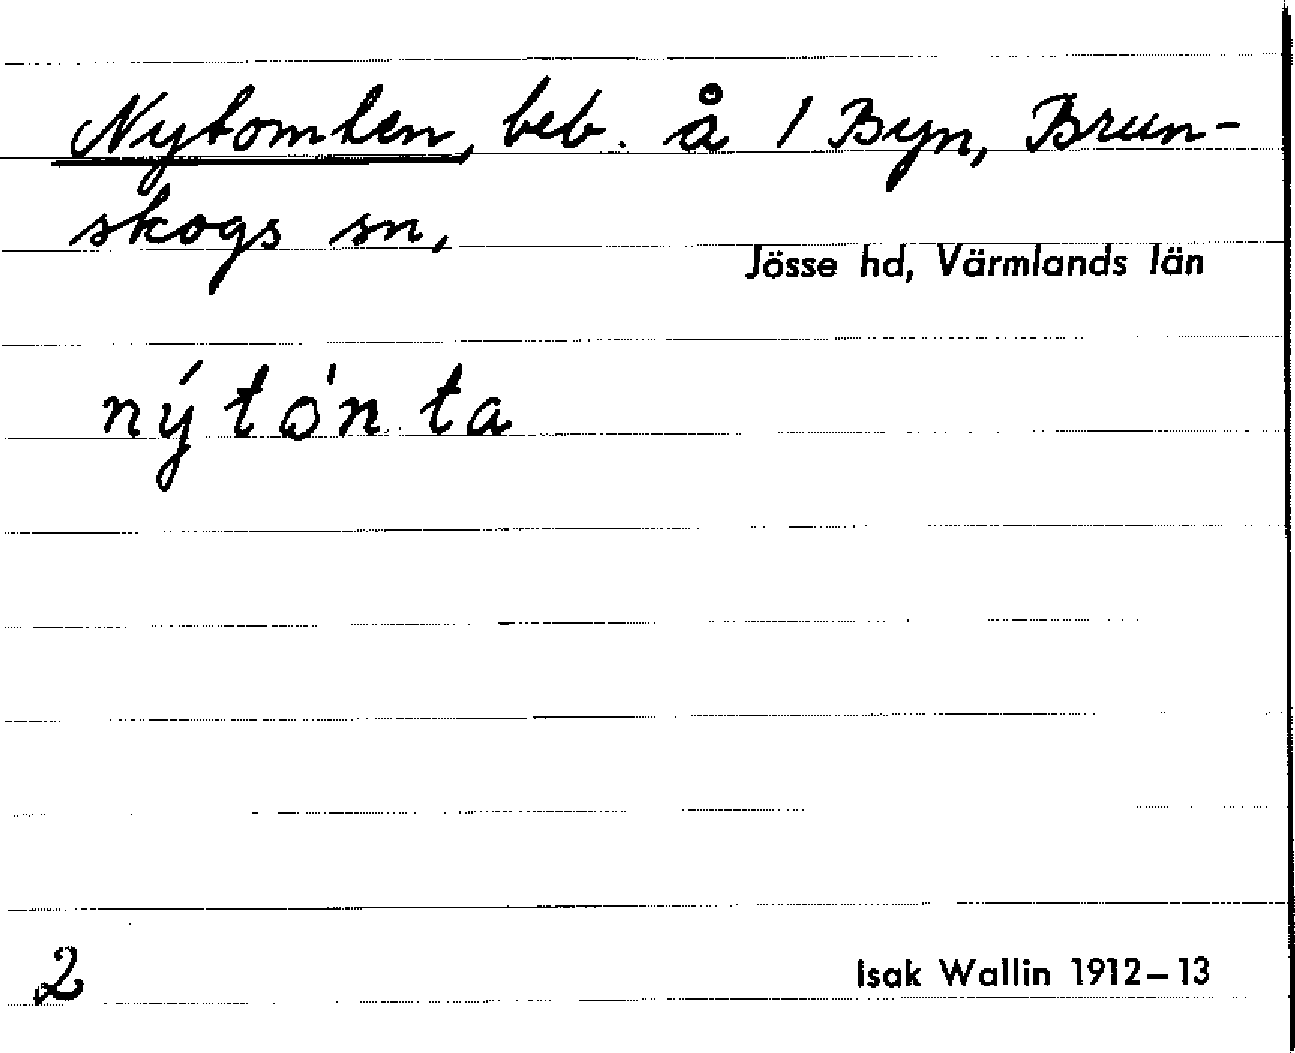 Nytomten, beb. å 1 Byn, Brun-
skogs sn,
Jösse hd, Värmlands län
nýtǫ́n ta
2
Isak Wallin 1912–13